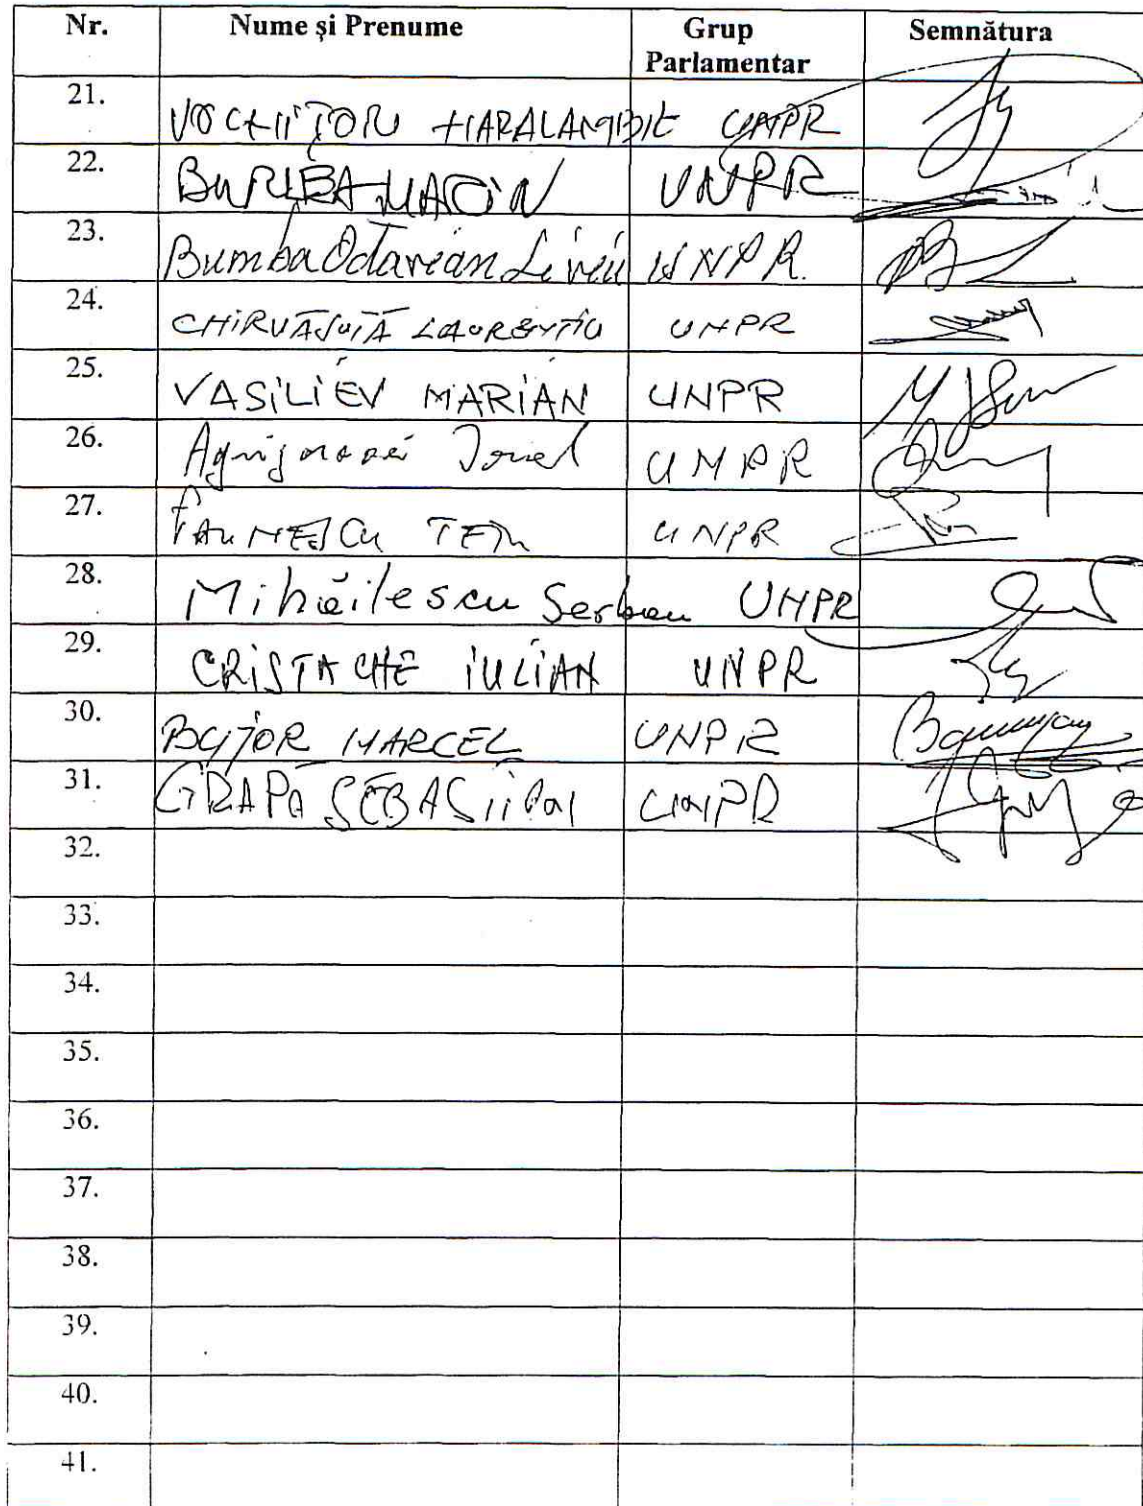 Nr. Nume și Prenume Grup Parlamentar Semnătura
21. VOCHIȚOIU HARALAMBIE UNPR
22. BURLEA MARIN UNPR
23. Bumba Octavian Liviu UNPR
24. CHIRVĂSUȚĂ LAURENȚIU UNPR
25. VASILIEV MARIAN UNPR
26. Agrigoroaei Ionel UNPR
27. PAUNESCU TEIU UNPR
28. Mihăilescu Serban UNPR
29. CRISTACHE IULIAN UNPR
30. BUJOR MARCEL UNPR
31. GRAPĂ SEBASTIAN UNPR
32.
33.
34.
35.
36.
37.
38.
39.
40.
41.